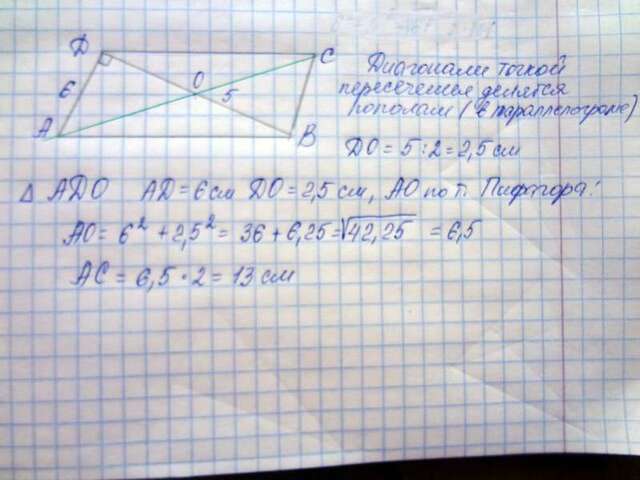 D C
O
6 5
A B
Диагонали точкой
пересечения делятся
пополам (в параллелограме)
DO = 5 : 2 = 2,5 см
Δ ADO AD = 6 см DO = 2,5 см, AO по т. Пифагора:
AO = 6² + 2,5² = 36 + 6,25 = √42,25 = 6,5
AC = 6,5 · 2 = 13 см